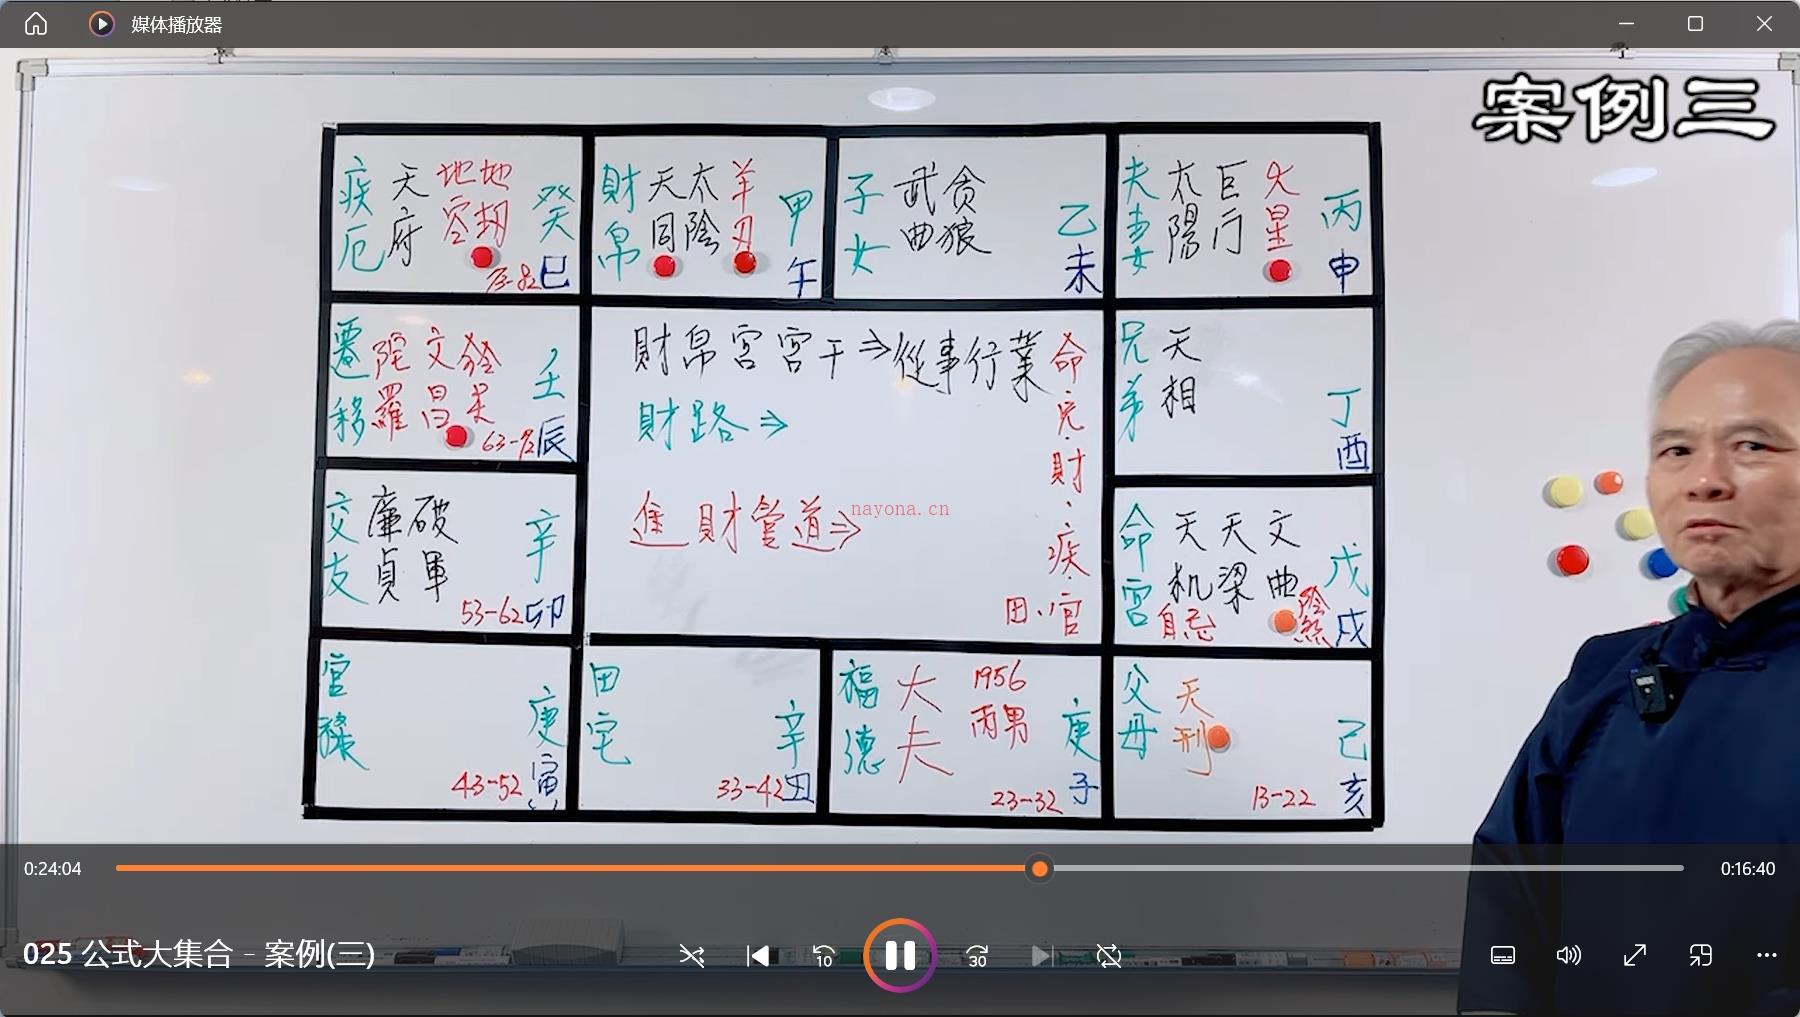 媒体播放器
案例三
疾厄
天府
地空
地劫
癸巳
73-82
財帛
天同
太陰
羊刃
甲午
子女
武曲
贪狼
乙未
夫妻
太陽
巨门
火星
丙申
遷移
陀羅
文昌
铃星
壬辰
63-72
財帛宮宮干⇒從事行業
財路⇒
進財管道⇒
命.兄.財.疾.官.田
nayona.cn
兄弟
天相
丁酉
交友
廉貞
破軍
辛卯
53-62
命宮
天机
天梁
文曲
自忌
陰煞
戊戌
官祿
庚寅
43-52
田宅
辛丑
33-42
福德
大夫
1956
丙男
庚子
23-32
父母
天刑
己亥
13-22
0:24:04
0:16:40
025 公式大集合 - 案例(三)
10
30